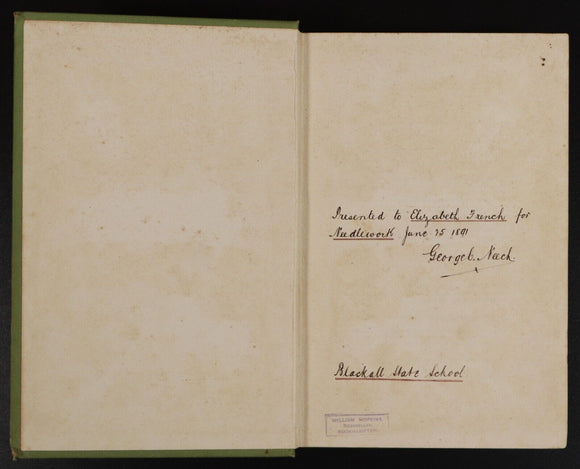 Presented to Elizabeth French for
Needlework June 25 1891
George
Blackall State School
WILLIAM HOPKINS,
BOOKSELLER,
ROCKHAMPTON.